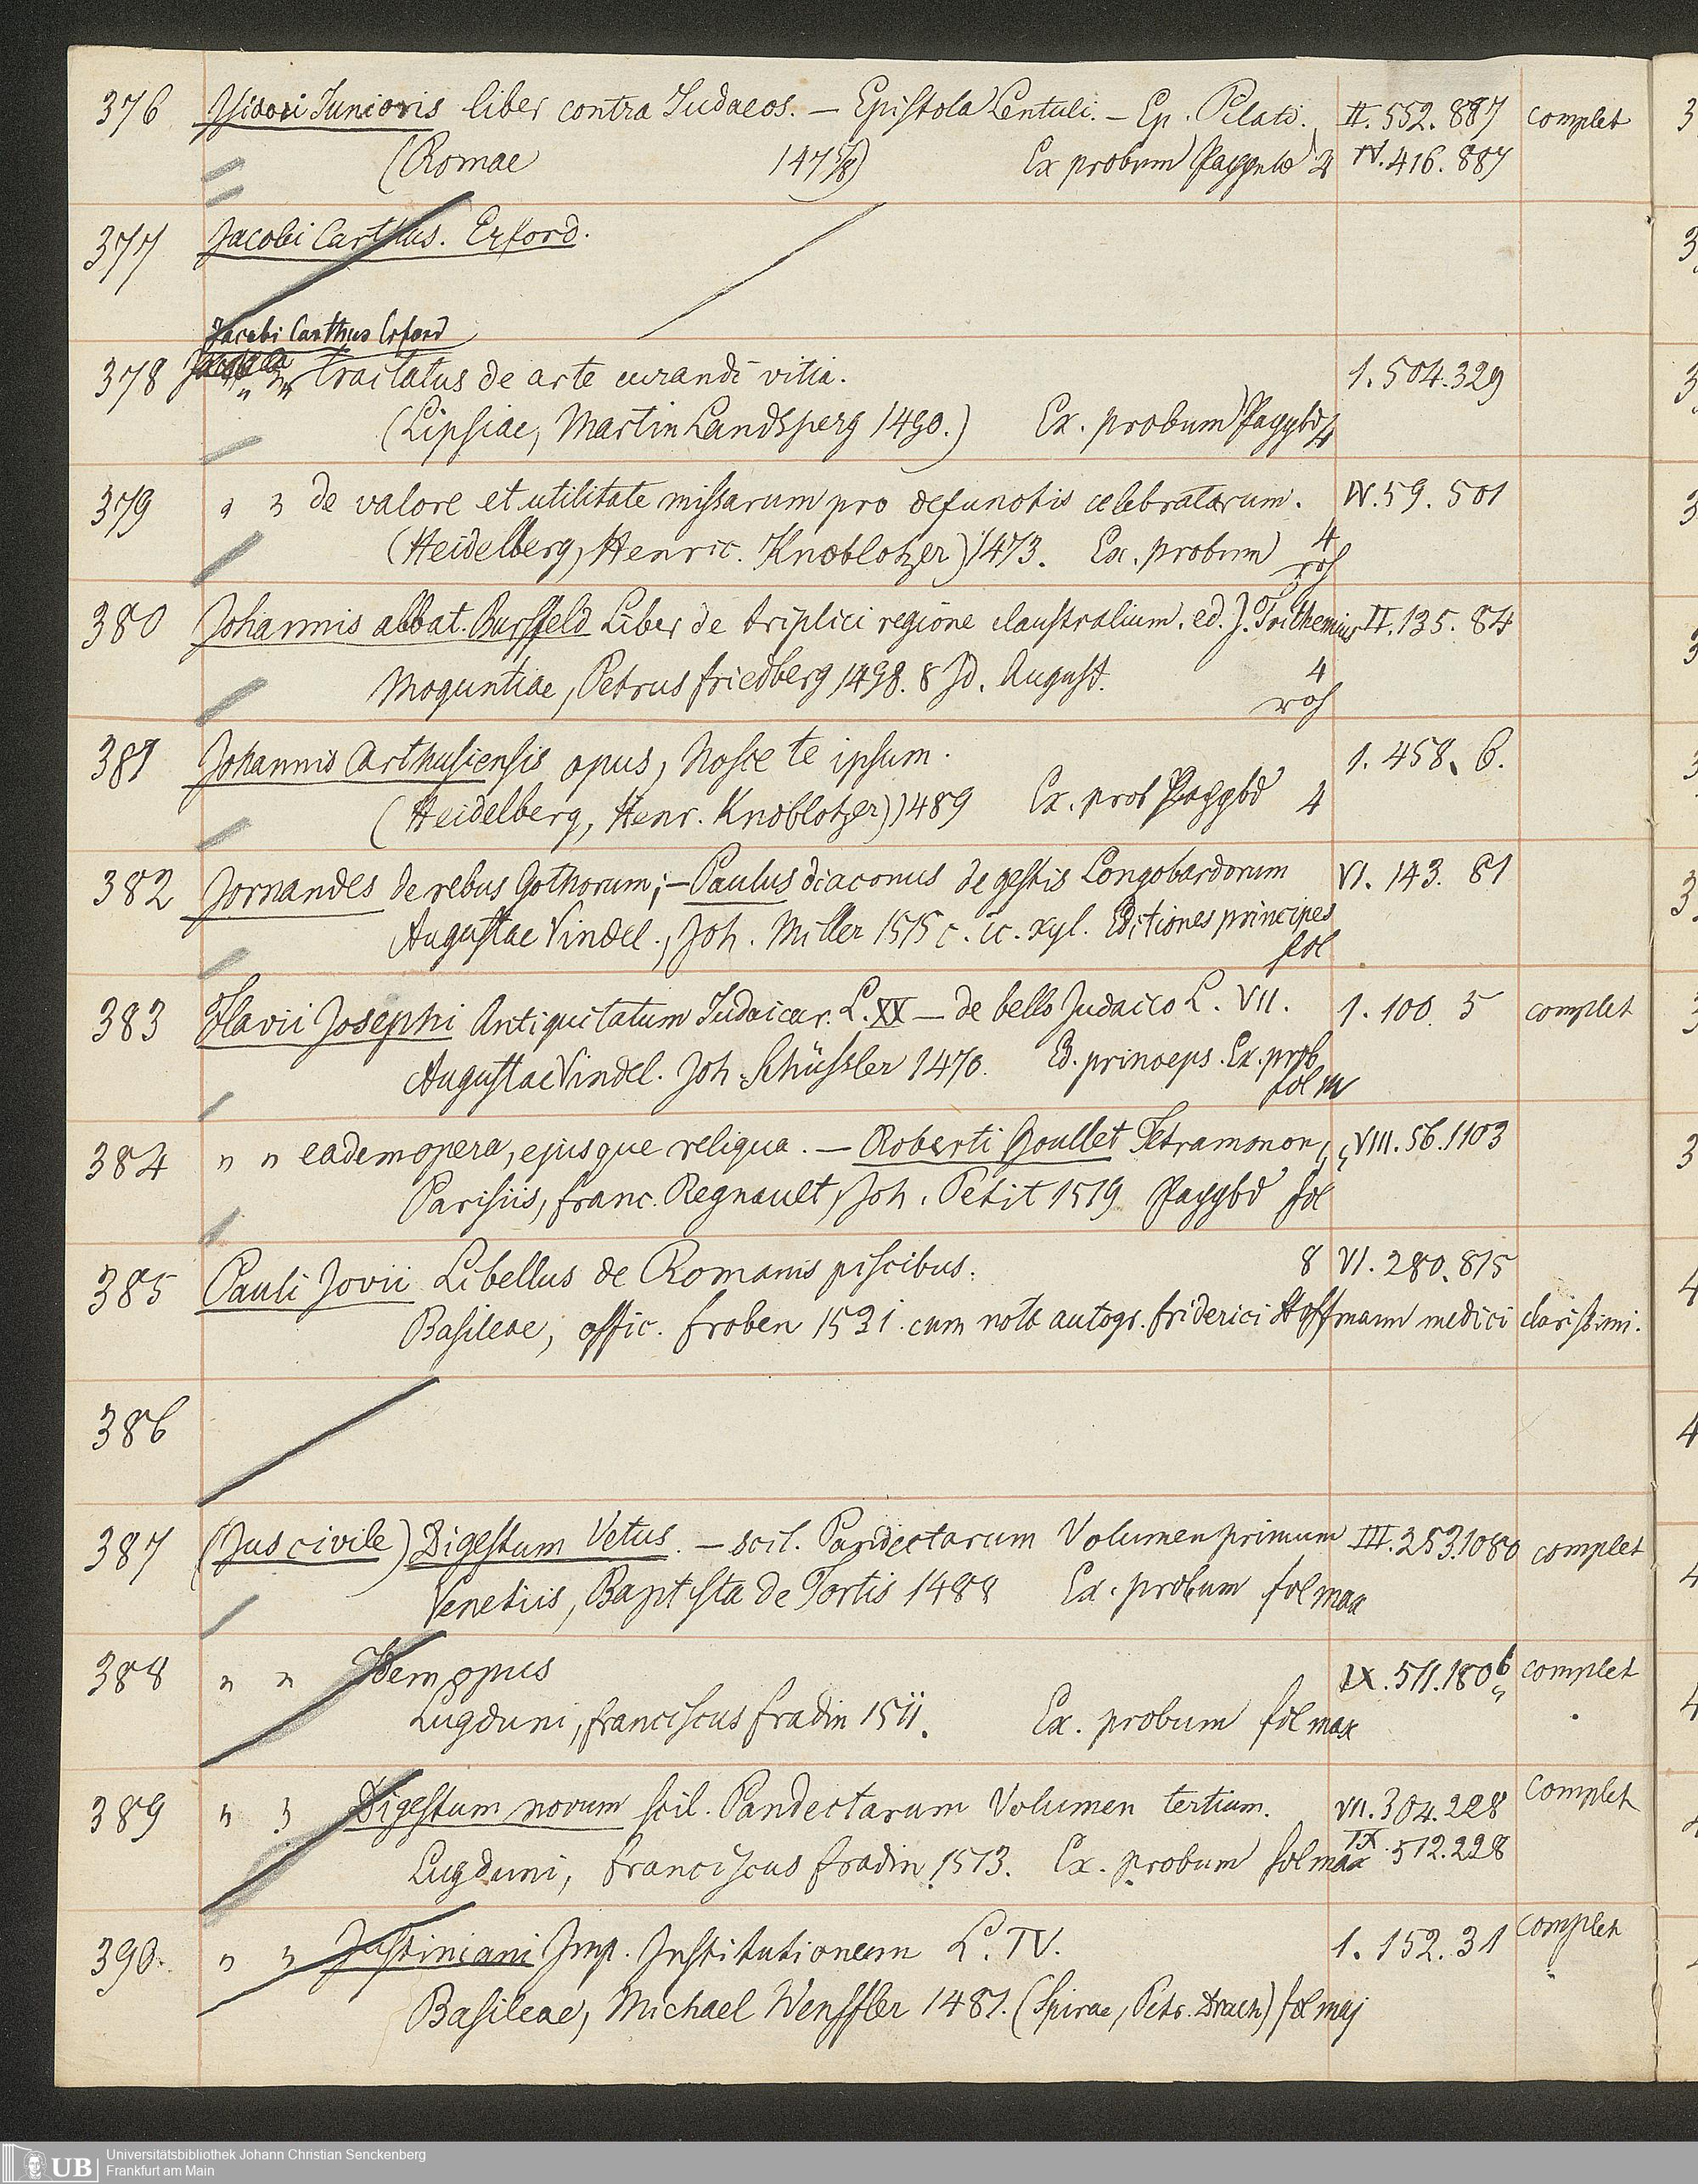 376 Isidori Junioris liber contra Judaeos. – Epistola Lentuli. – Ep. Pilati. II. 552. 887 complet
(Romae 147 7/8) Ex probum Pappbd 4 IV. 416. 887
377 Jacobi Carthus. Erford.
Jacobi Carthus Erford
378 " " tractatus de arte curandi vitia. 1. 504. 329
(Lipsiae, Martin Landsperg 1490.) Ex. probum Pappbd 4
379 " " de valore et utilitate missarum pro defunctis celebratarum. IV. 59. 501
(Heidelberg, Henric. Knoblotzer) 1473. Ex. probum 4
roh
380 Johannis abbat. Bursfeld Liber de triplici regione claustralium. ed. J. Trithemius II. 135. 84
Moguntiae, Petrus Friedberg 1498. 8 Jd. August. 4
roh
381 Johannis Carthusiensis opus, Nosce te ipsum. 1. 458. 6.
(Heidelberg, Henr. Knoblotzer) 1489 Ex. prob Pappbd 4
382 Jornandes de rebus Gothorum; – Paulus diaconus de gestis Longobardorum VI. 143. 81
Augustae Vindel., Joh. Miller 1515 c. ic. xyl. Editiones principes
fol
383 Flavii Josephi Antiquitatum Judaicar. L. XX – de bello Judaico L. VII. 1. 100. 5 complet
Augustae Vindel. Joh. Schüssler 1470. Ed. princeps. Ex. prob
fol m
384 " " eadem opera, ejusque reliqua. – Roberti Goullet Tetramonon, VIII. 56. 1103
Parisiis, Franc. Regnault, Joh. Petit 1519 Pappbd fol
385 Pauli Jovii Libellus de Romanis piscibus. 8 VI. 280. 815
Basileae, offic. Froben 1531. cum notis autogr. Friderici Hoffmann medici clarissimi.
386
387 (Jus civile) Digestum Vetus. – scil. Pandectarum Volumen primum III. 253. 1080 complet
Venetiis, Baptista de Tortis 1488 Ex. probum fol max
388 " " Idem opus IX. 511. 1806 complet
Lugduni, Franciscus Fradin 1511. Ex. probum fol max
389 " " Digestum novum scil. Pandectarum Volumen tertium. VII. 304. 228 complet
Lugduni, Franciscus Fradin 1513. Ex. probum fol max IX. 512. 228
390. " " Justiniani Imp. Institutionum L. IV. 1. 152. 31 complet
Basileae, Michael Wenssler 1481. (Spirae, Petr. Drach) fol maj
UB Universitätsbibliothek Johann Christian Senckenberg
Frankfurt am Main